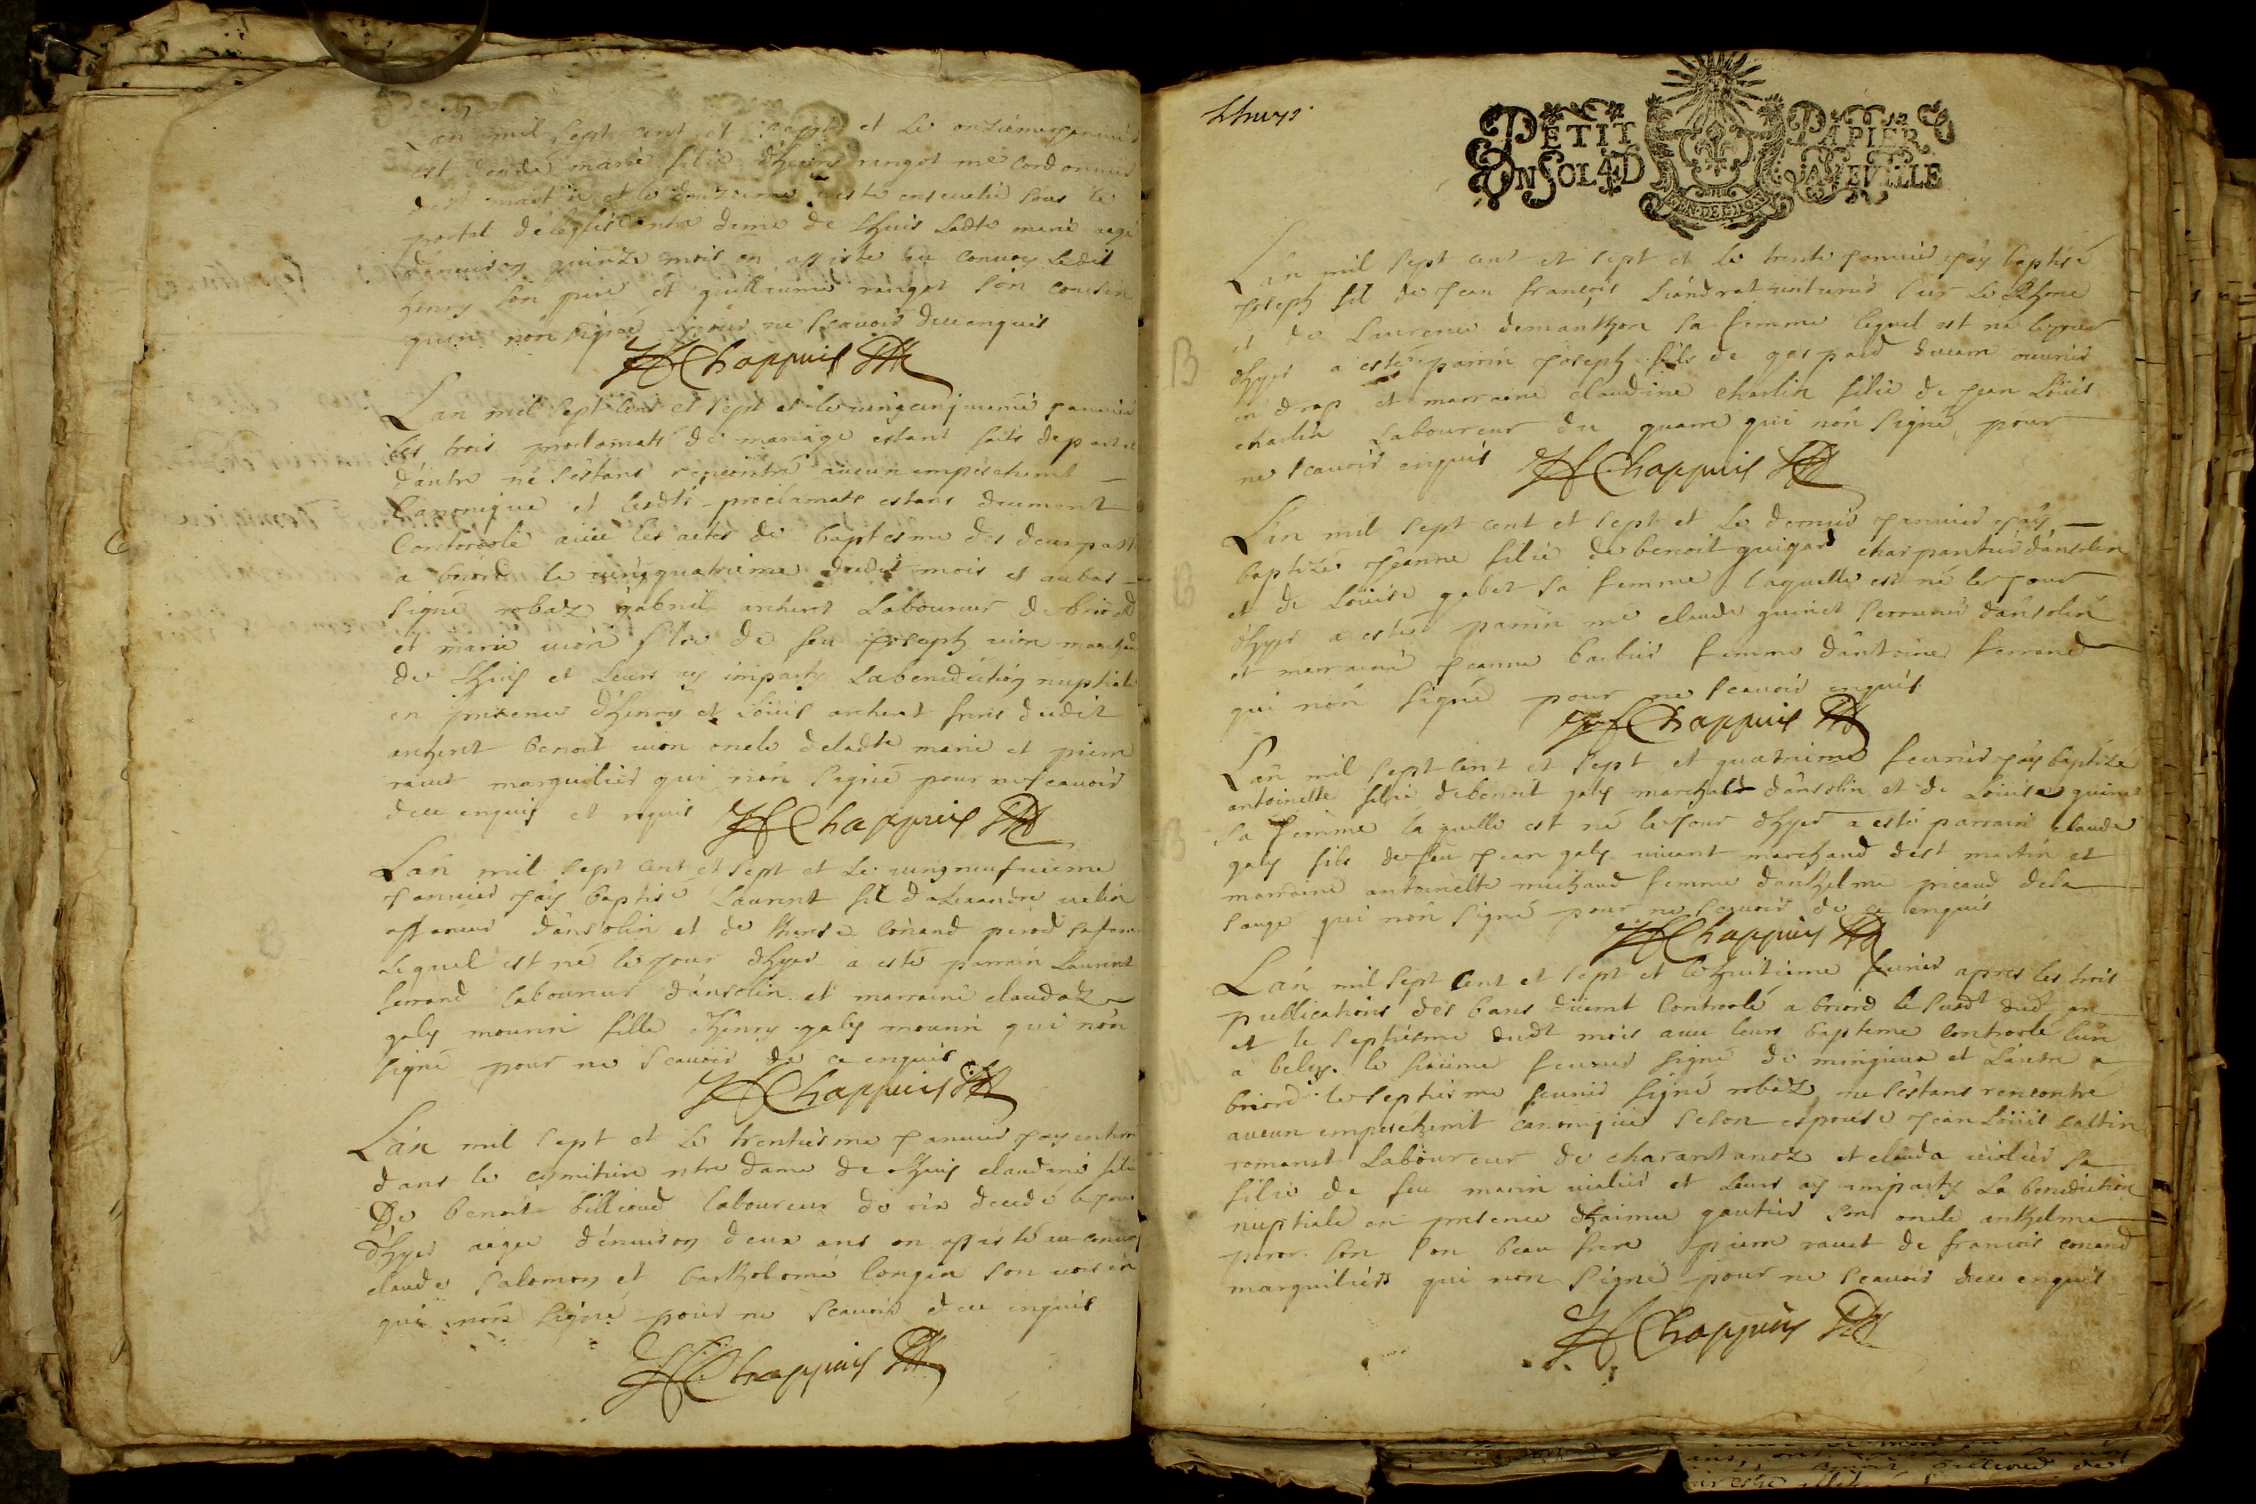 Lan mil sept cent et sept et le onziéme janvier
est marie filie dhenry rangot me cordonnier
et le douzieme este ensevelie sous le
portal de leglise notre dame de Lhuis ladte marie aagé
denviron quinze mois on assisté au convoy ledit
henry son pere et guillaume rangot son cousin
qui non signé pour ne scavoir de ce enquis
Chappuis
Lan mil sept cent et sept et le vingcinquieme janvier
les trois proclamats de mariage estant faits de part et
dautre ne sestans rencontré aucun empeschemt
canonique et lesdts proclamats estans deument
Controolé avec les actes de baptesme des deux parts
a briord le vingquatrieme dudit mois et au bas
signé robaz gabriel archert Laboureur de briord
et marie vion filie de feu joseph vion marchand
de Lhuis et leurs ay imparty La benediction nuptiale
en presence dhenry et Loüis archert freres dudit
archert benoit vion oncle deladte marie et pierre
ravet marguilier qui non signé pour ne scavoir
de ce enquis et requis Chappuis
Lan mil sept cent et sept et le vingneufvieme
janvier jay baptisé Laurent fil dalexandre
affaneur dansolin et de Conand perod sa femme
Lequel est né le jour dhyer a esté parrin Laurent
ferrand laboureur dansolin et marraine claudaz
galy mourin fille dhenry galy mourin qui non
signé pour ne scavoir de ce enquis
Chappuis
Lan mil sept et le trentiesme janvier jay enterré
dans le cymitiere ntre dame de Lhuis claudine filie
De benoit billioud laboureur de rix decedé le jour
dhyer aagee denviron deux ans on assisté au convoy
claude salomon et bartholomé longin son voisin
qui non signé pour ne scavoir de ce enquis
Chappuis
Lhuys
PETIT PAPIER
UN SOL 4 D LA FEUILLE
GEN. DE DIJON
Lan mil sept cent et sept et le trente janvier jay baptisé
joseph fil de jean francois Liandrat voiturier sur le Rhone
et de Laurence demanthon sa femme lequel est né le jour
dhyer a esté parrin joseph fils de gaspard ouvrier
en drap et marraine claudine charlin filie de jean Loüis
charlin Laboureur du qui non signé pour
ne scavoir enquis Chappuis
B
Lan mil sept cent et sept et le dernier janvier jay
baptizée jeanne filie de benoit guigard charpantier dansolin
et de Loüise gabet sa femme laquelle est né le jour
dhyer a esté parrin me claude guinet serrurier dansolin
et marraine jeanne barbier femme dantoine ferrand
qui non signé pour ne scavoir enquis
Chappuis
B
Lan mil sept cent et sept et quatrieme fevrier jay baptizé
antoinette filie de benoit galy marchand dansolin et de Loüise guinet
sa femme laquelle est né le jour dhyer a esté parrain claude
galy fils de feu jean galy vivant marchand de st martin et
marraine antoinette michaud femme danthelme picaud dela
sauge qui non signé pour ne scavoir de ce enquis
Chappuis
B
Lan mil sept cent et sept et le huitieme fevrier apres les trois
publications des bans düemt Controolé a briord le susdt dud an
et le septiesme dudt mois avec leurs bapteme controolé lun
a beley le sixieme fevrier signé de mingieux et lautre a
briord le septiesme fevrier signé robaz ne sestans rencontré
aucun empeschemt canonique se son espousé jean Loüis
romanet Laboureur de charantanoz et clauda violier sa
filie de feu marin violier et leurs ay imparty la benediction
nuptiale en presence dhaimee gautier son oncle anthelme
son son beau frere pierre ravet de francois conand
marguiliers qui non signé pour ne scavoir de ce enquis
Chappuis
M